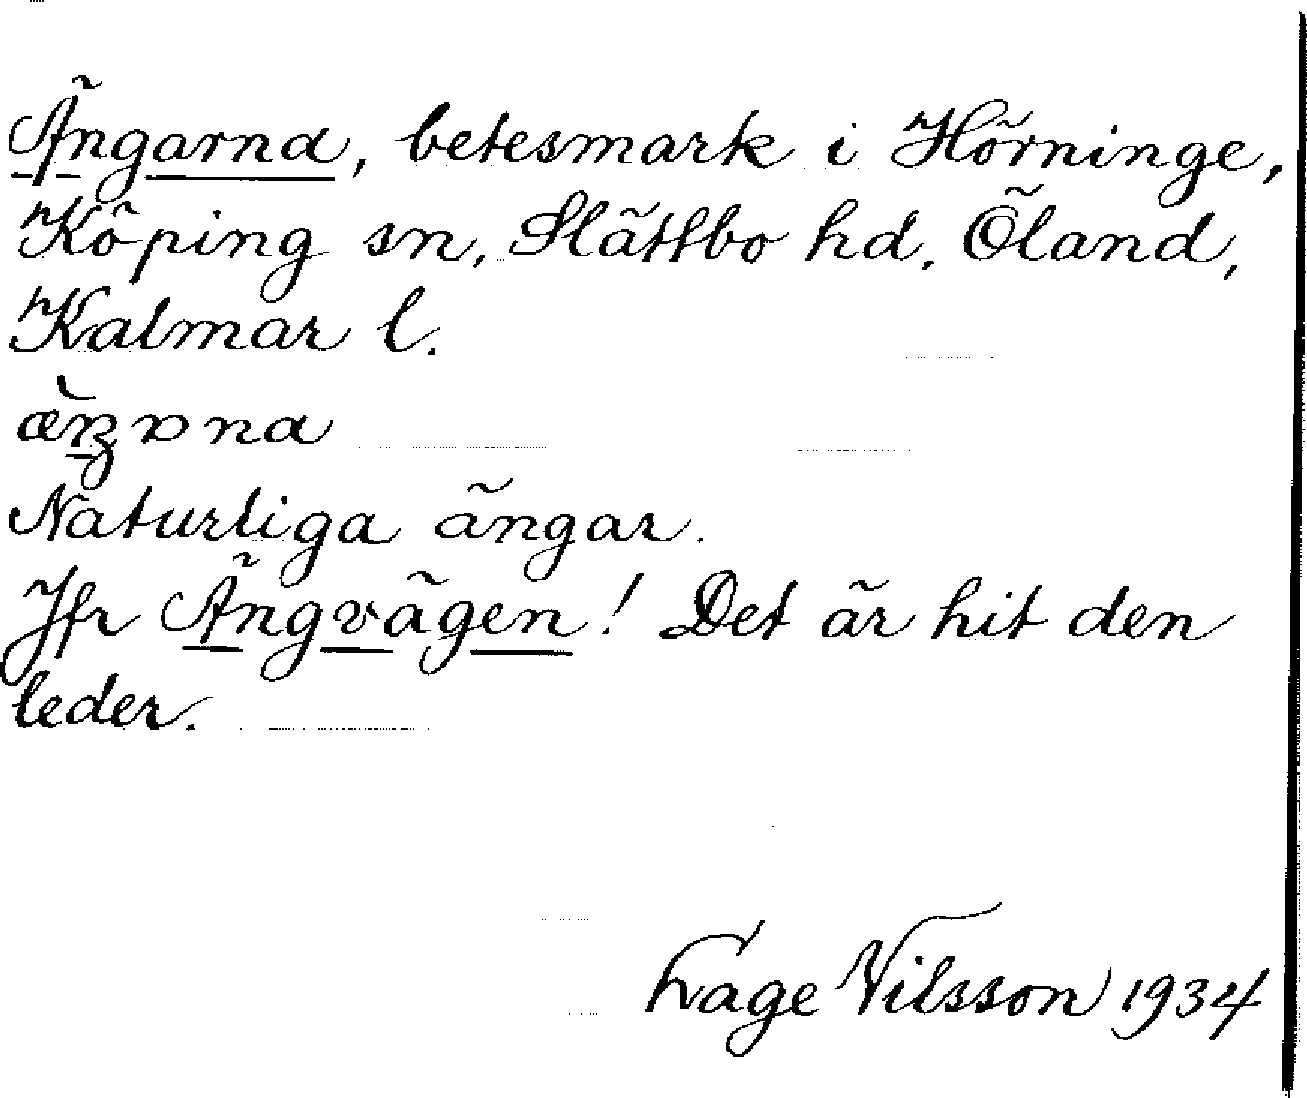 Ängarna, betesmark i Hörninge,
Köping sn, Slättbo hd. Öland,
Kalmar l.
Naturliga ängar.
Jfr Ängvägen! Det är hit den
leder.
Lage Nilsson 1934